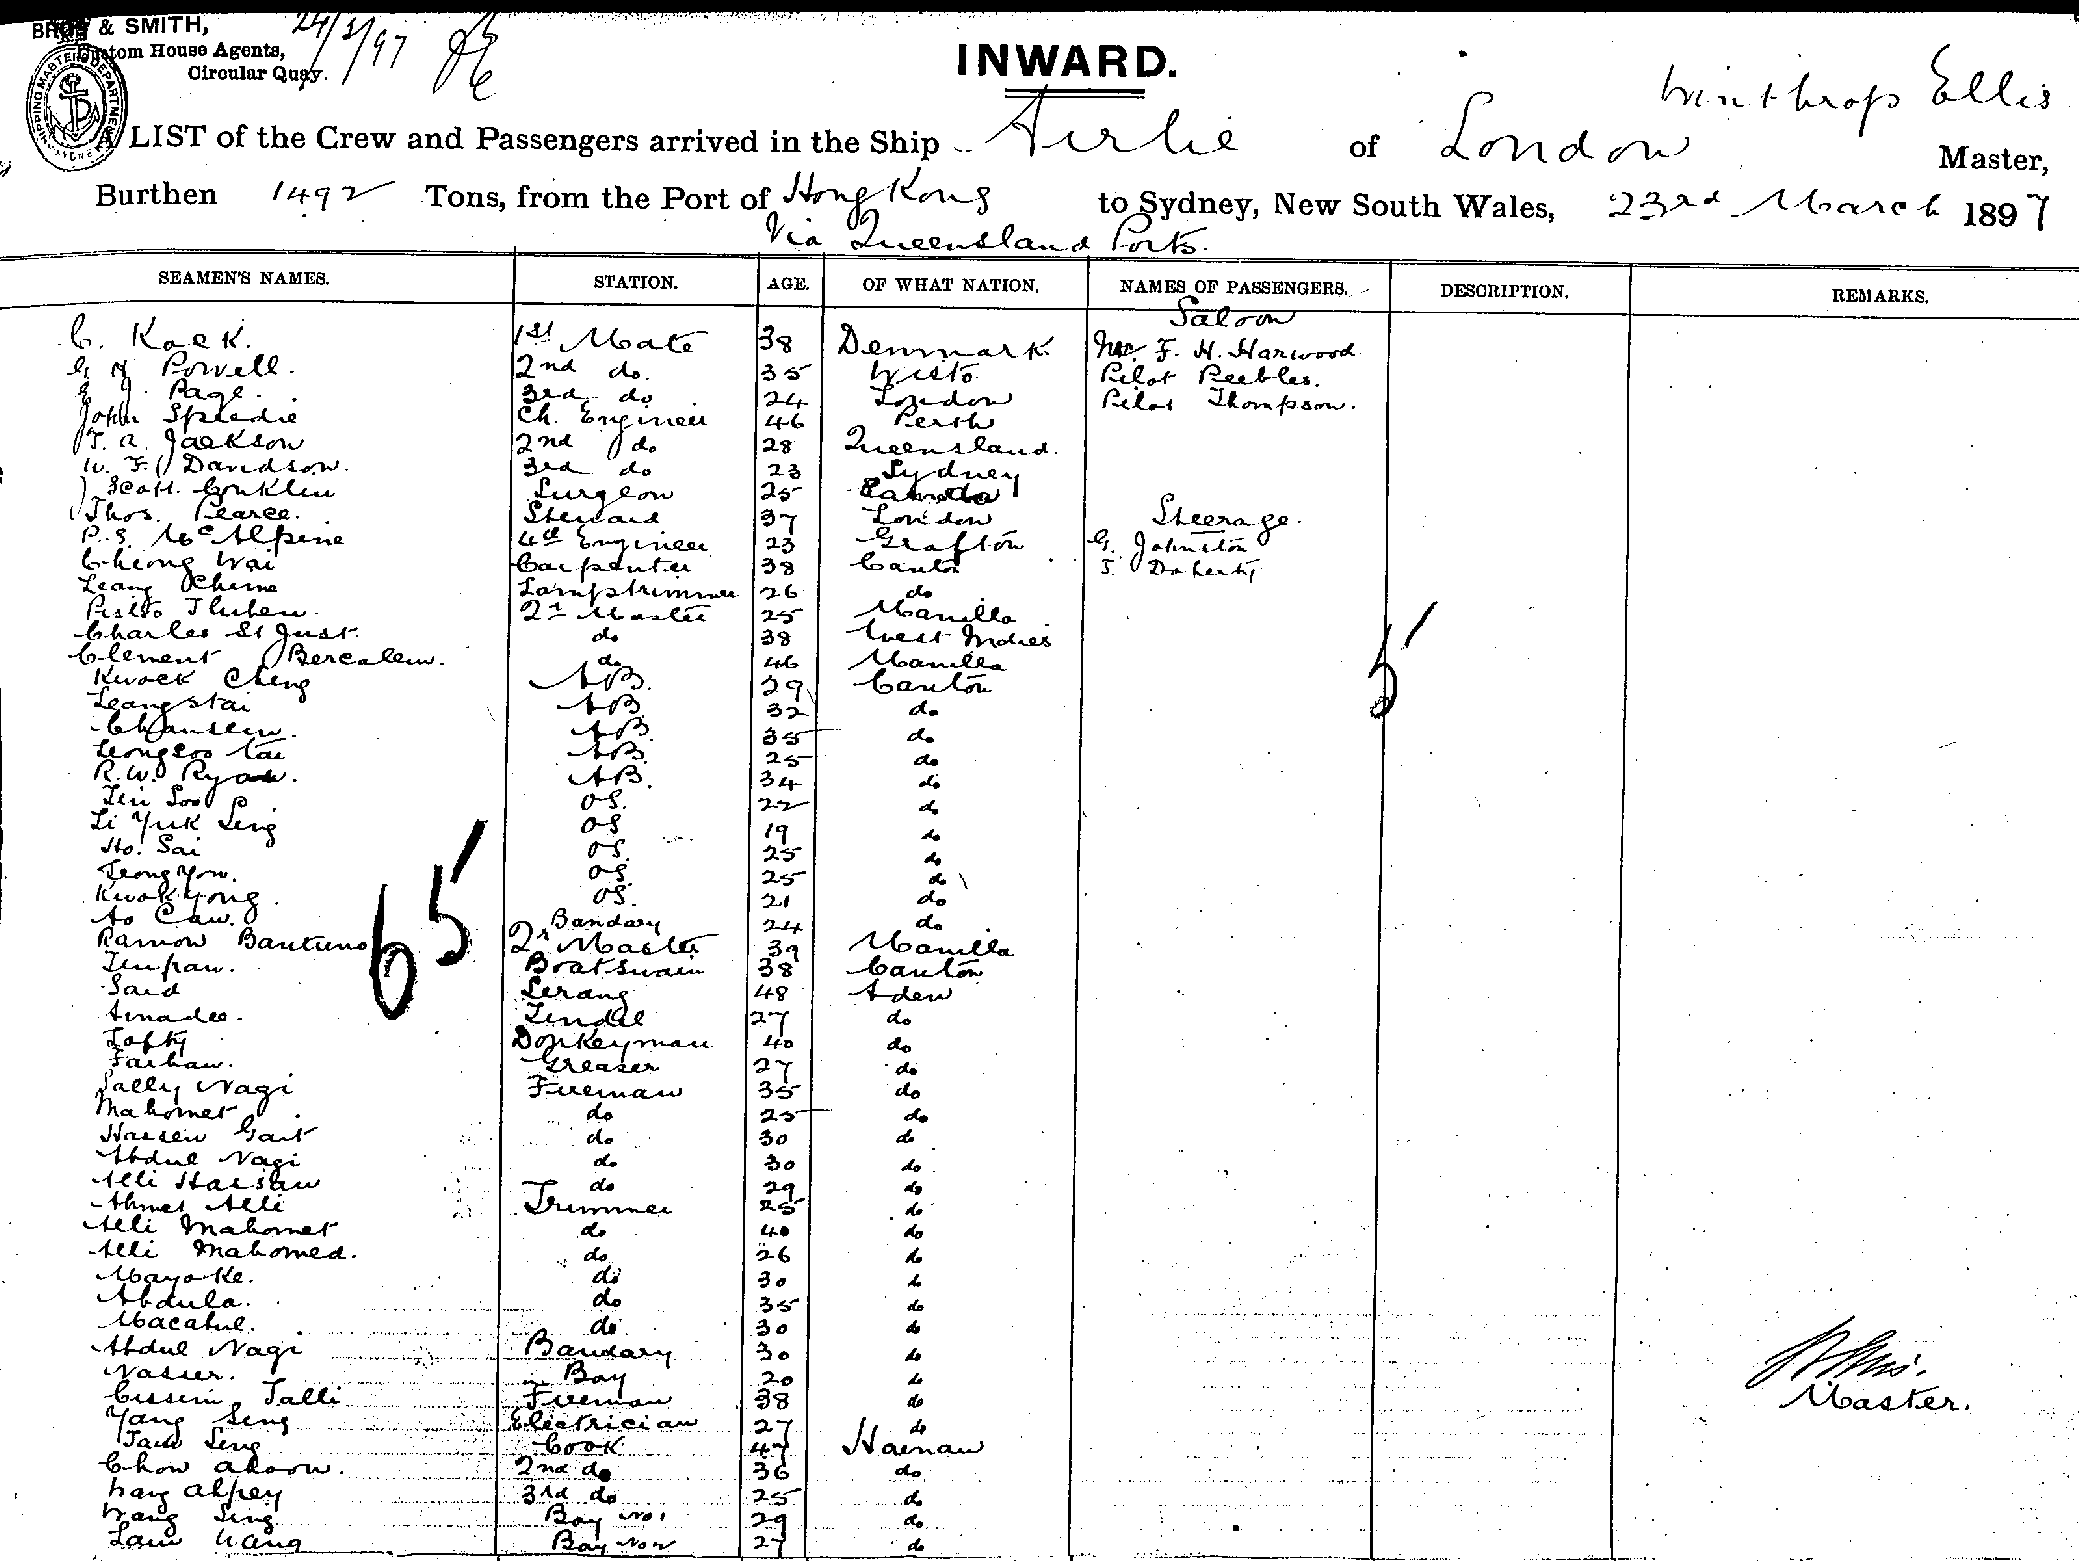 BROS & SMITH,
Custom House Agents,
Circular Quay.
24/3/97
INWARD.
Winthrop Ellis
A LIST of the Crew and Passengers arrived in the Ship Airlie of London Master,
Burthen 1492 Tons, from the Port of Hong Kong to Sydney, New South Wales, 23rd March 1897
Via Queensland Ports.
SEAMEN'S NAMES. STATION. AGE. OF WHAT NATION. NAMES OF PASSENGERS. DESCRIPTION. REMARKS.
Saloon
C. Kock. 1st Mate 38 Denmark Mr F. H. Harwood
Powell. 2nd do. 35 Pilot Peebles.
J. Page. 3rd do 24 London Pilot Thompson.
John Speedie Ch. Engineer 46 Perth
T. A. Jackson 2nd do 28 Queensland.
W. F. Davidson. 3rd do 23 Sydney
J Scott Conklin Surgeon 25 Canada
Thos. Pearce. Steward 37 London Steerage.
P. S. McAlpine 4th Engineer 23 Grafton G. Johnston
Cheong Wai Carpenter 38 Canton J. Doherty
Leang Lamptrimmer 26 do
2r Master 25 Manilla
Charles St Just. do 38 West Indies
Clement do 46 Manilla
Kwock Cheng AB. 29 Canton
Leang Stai AB 32 do
AB. 35 do
AB. 25 do
R. W. Ryan. AB. 34 do
OS. 22 do
Li Yuk Seng OS 19 do
Ho. Sai OS. 25 do
Leong Yow. OS. 25 do
Kwok Yong. OS. 21 do
Ao Caw. Bandary 24 do
Ramon 2r Master 39 Manilla
Boatswain 38 Canton
65
5
Said Serang 48 Aden
Amadee. Tindal 27 do
Lofty Donkeyman 40 do
Farhan. Greaser 27 do
Sally Nagi Fireman 35 do
Mahomet do 25 do
Hassen do 30 do
Abdul Nagi do 30 do
Alli Hassan do 29 do
Ahmet Alli Trimmer 25 do
Alli Mahomet do 40 do
Alli Mahomed. do 26 do
Mayoke. do 30 do
Abdula. do 35 do
do 30 do
Abdul Nagi Bandary 30 do
Nasser. Boy 20 do
Cissein Talli Fireman 38 do
Yang Seng Electrician 27 do
Seng Cook 47 Hainan
Chow Ahoon. 2nd do 36 do
3rd do 25 do
Wang Sing Boy No 1 29 do
Lam Wang Boy No 2 27 do
Master.